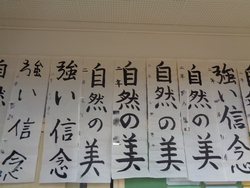 自然の美
強い信念
自然の美
自然の美
自然の美
自然の美
強い信念
強い信念